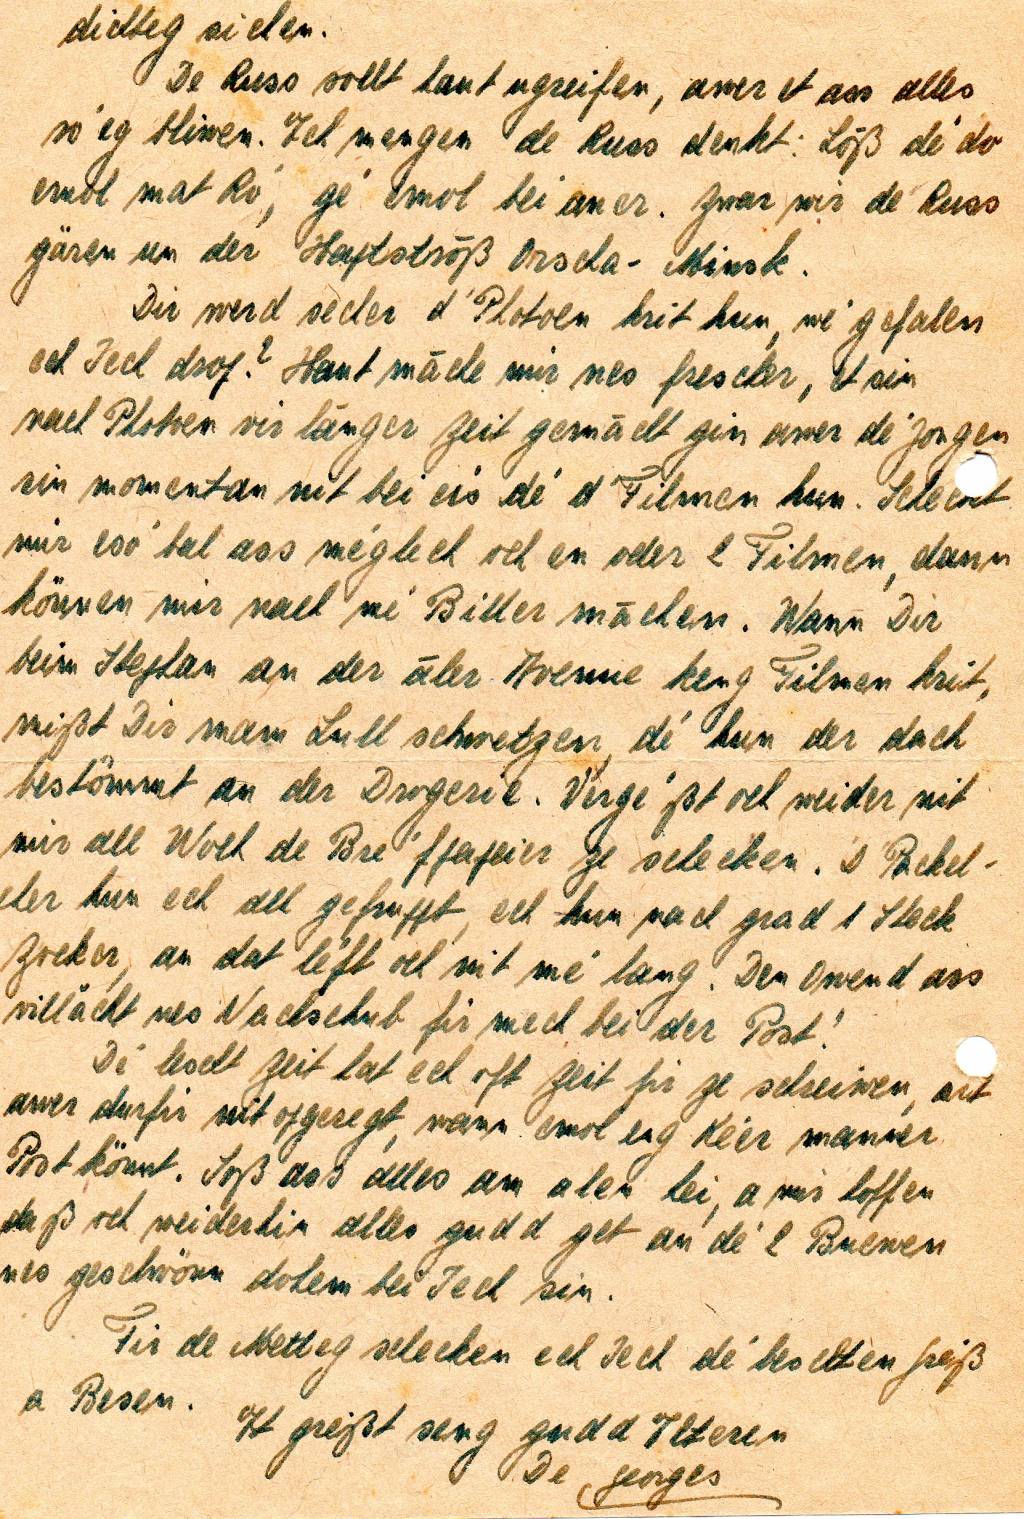 dichteg sichen.
De Russ sollt haut ugreifen, awer et ass alles
ró'eg bliwen. Ech mengen de Russ denkt: Löß dé do
emol mat Ró, gé emol bei aner. Zwar wir de Russ
gären un der Haptströß Orscha - Minsk.
Dir werd secher d'Photoen krit hun, wé gefalen
ech Iech drop? Haut mäche mir nes frescher, et sin
nach Photoen vir länger Zeit gemächt gin awer dé Jongen
sin momentan nit bei eis dé d'Filmen hun. Scheckt
mir esó bal ass méglech och en oder 2 Filmen, dann
können mir nach mé Biller mächen. Wann Dir
beim Steftan an der äler Avenue keng Filmen krit,
mißt Dir mam Lull schwetzen, dé hun der dach
bestömmt an der Drogerie. Vergé'ßt och weider nit
mir all Woch de Bré'fpapeier ze schecken. D'Päckel-
cher hun ech all gefrupst, ech hun nach grad 1 Steck
Zocker, an dat léft och nit mé lang. Den Owend ass
villächt nes Nachschub fir mech bei der Post!
Dé lescht Zeit hat ech oft Zeit fir ze schreiwen, sit
awer durfir nit opgeregt, wann emol eng Kéier manner
Post könnt. Soß ass alles am alen hei, a mir hoffen
daß och weiderhin alles gudd get an dé 2 Buewen
nes geschwönn dohem bei Iech sin.
Fir de Metteg schecken ech Iech dé beschten Gréiß
a Besen.
It greißt seng gudd Elteren
De Georges